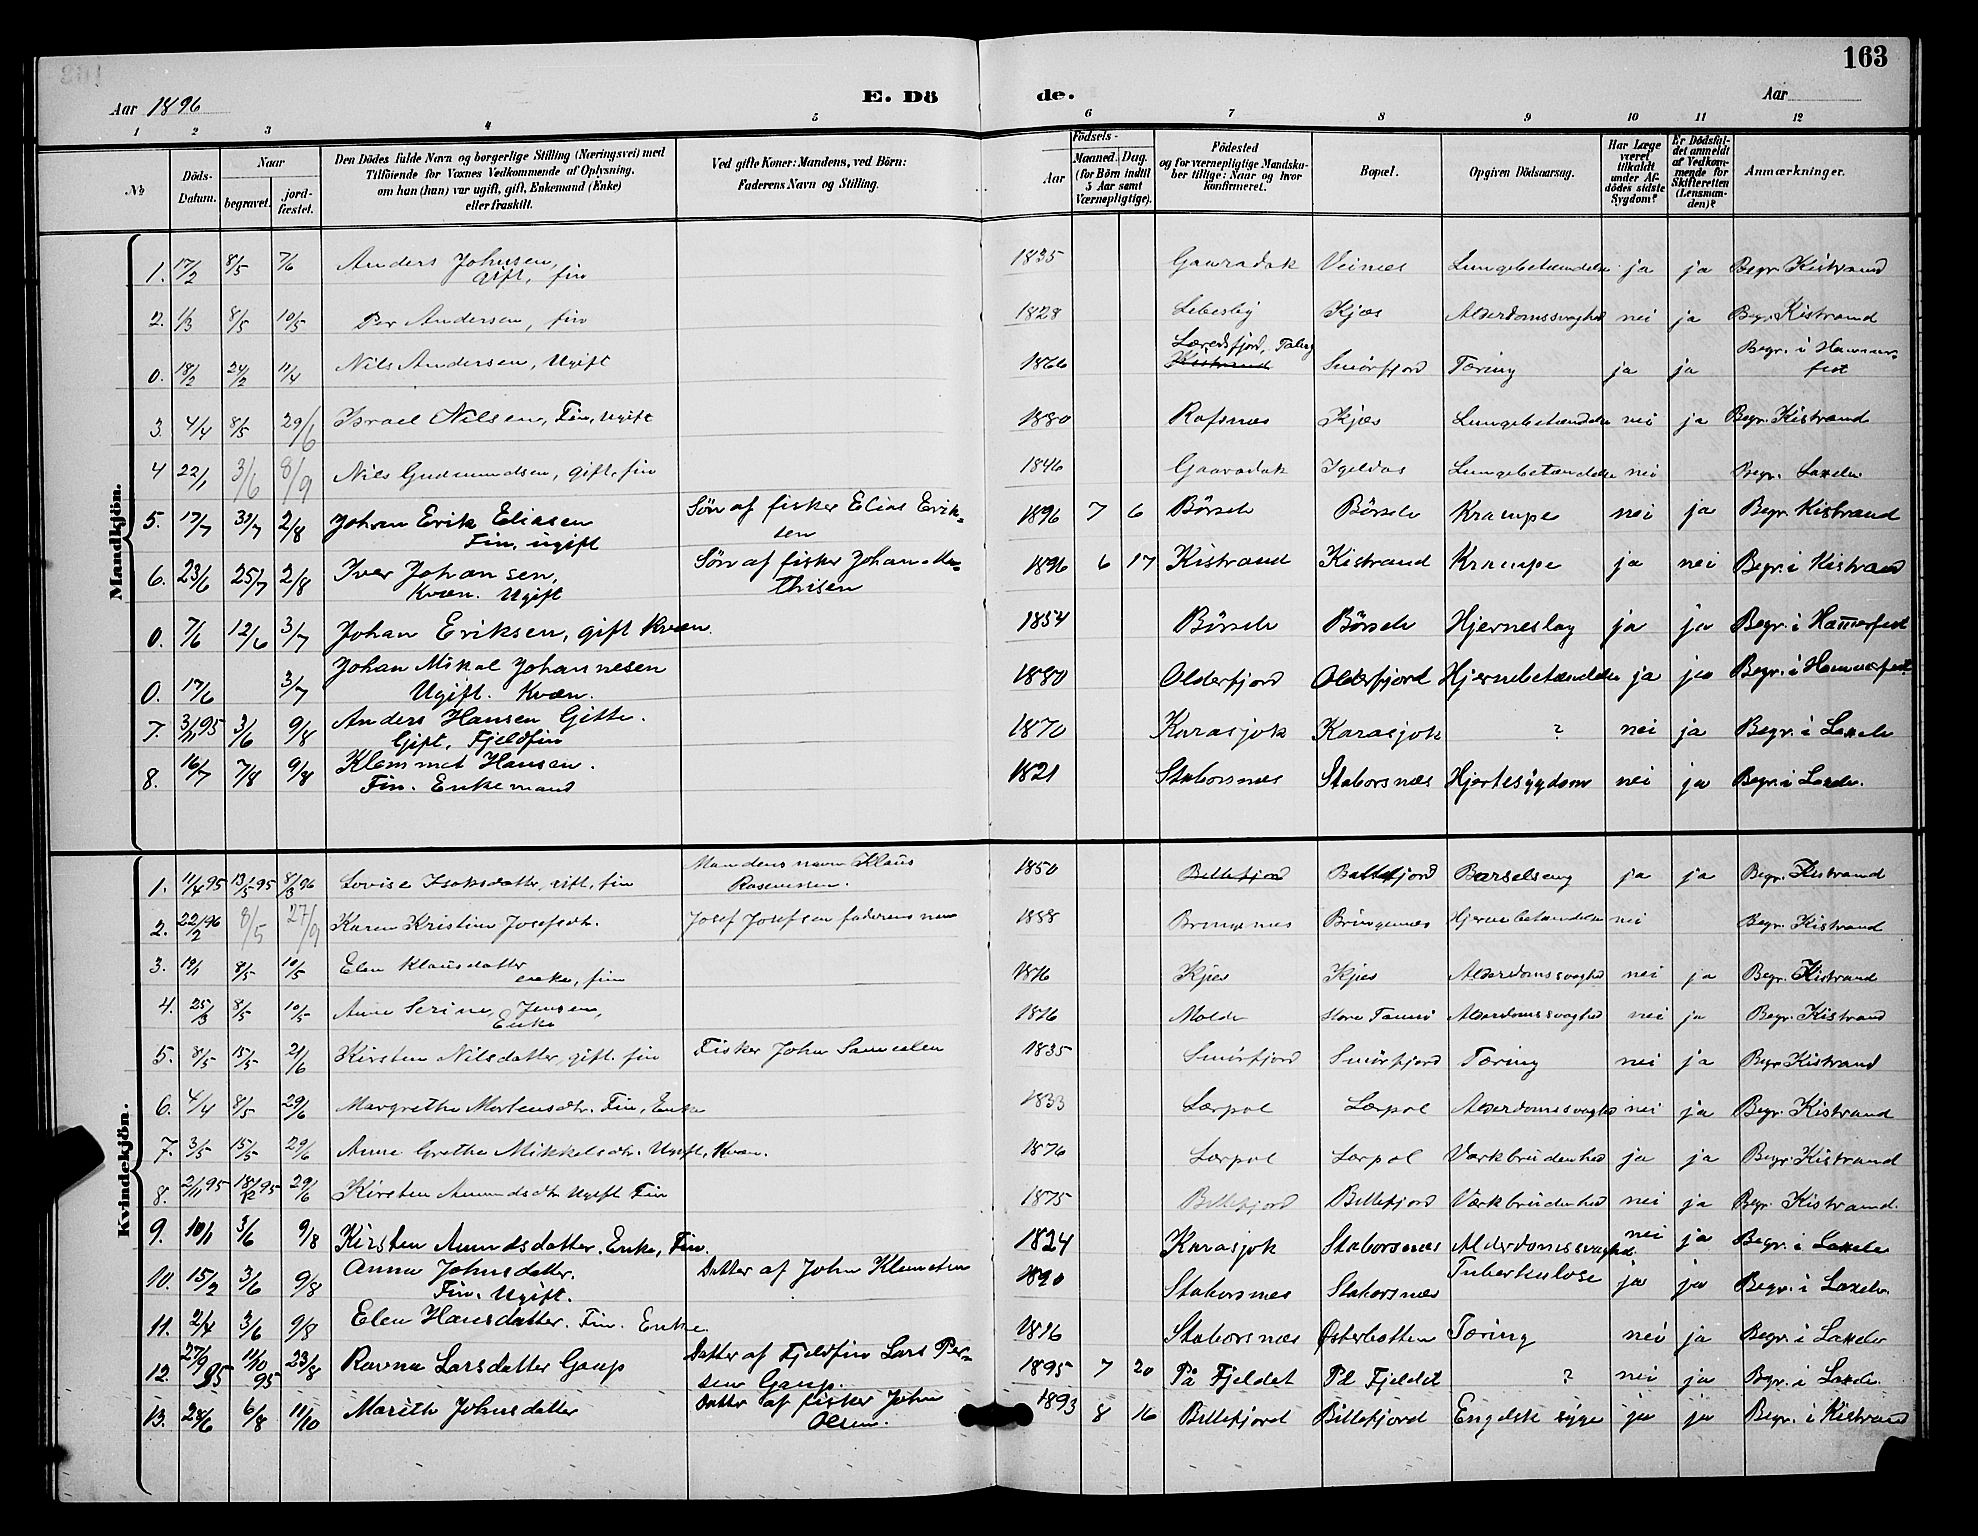 163
Aar 1896
E. Dö de.
Aar
1 2 3 4 5 6 7 8 9 10 11 12
№
Döds-Datum.
Naar
begravet.
jord-fæstet.
Den Dödes fulde Navn og borgerlige Stilling (Næringsvei) med
Tilföiende for Voxnes Vedkommende af Oplysning,
om han (hun) var ugift, gift, Enkemand (Enke)
eller fraskilt.
Ved gifte Koner: Mandens, ved Börn:
Faderens Navn og Stilling.
Födsels-
Aar
Maaned. Dag.
(for Börn indtil
5 Aar samt
Værnepligtige).
Födested
og for værnepligtige Mandska-
ber tillige: Naar og hvor
konfirmeret.
Bopæl.
Opgiven Dödsaarsag.
Har Læge
været
tilkaldt
under Af-
dödes sidste
Sygdom?
Er Dödsfal-
det anmeldt
af Vedkom-
mende for
Skifteretten
(Lensman-
den)?
Anmærkninger.
Mandkjön.
1. 17/2 8/5 7/6 Anders Johnsen, gift, fin 1835 Gaaradak Veines Lungebetændelse ja ja Begr. Kistrand
2. 1/3 8/5 10/5 Per Andersen, fin 1828 Lebesby Kjæs Alderdomssvaghed nei ja Begr. Kistrand
0. 18/2 24/2 11/4 Nils Andersen, Ugift 1866 Kistrand Smörfjord Tæring ja ja Begr. i Hammerfest
3. 4/4 8/5 29/6 Israel Nilsen, Fin, Ugift 1880 Rafsnes Kjæs Lungebetændelse nei ja Begr. Kistrand
4 22/1 3/6 8/9 Nils Gudmundsen, gift, fin 1846 Gaaradak Igeldas Lungebetændelse nei Begr. Laxelv
5. 17/7 31/7 2/8 Johan Erik Eliasen Fin, ugift Sön af fisker Elias Eriksen 1896 7 6 Börselv Börselv Krampe nei ja Begr. Kistrand
6. 23/6 25/7 2/8 Iver Johansen, Kvæn. Ugift Sön af fisker Johan Mathisen 1896 6 17 Kistrand Kistrand Krampe ja nei Begr. i Kistrand
0. 7/6 12/6 3/7 Johan Eriksen, gift Kvæn. 1854 Börselv Börselv Hjerneslag ja ja Begr. i Ham̄erfest
0. 17/6 3/7 Johan Mikal Johannesen Ugift. Kvæn. 1880 Olderfjord Olderfjord Hjernebetændelse ja ja Begr. i Hammerfest
7. 3/11 95 3/6 9/8 Anders Hansen Gitte. Gift, Fjeldfin 1870 Karasjok Karasjok ? nei ja Begr. i Laxelv
8. 16/7 7/8 9/8 Klemmet Hansen. Fin. Enkemand 1821 Staborsnæs Staborsnæs Hjertesygdom nei ja Begr. i Laxelv.
Kvindekjön.
1. 11/4 95 13/5 95 8/3 96 Lovise Isaksdatter, gift, fin Mandens navn Klaus Rasmussen. 1850 Billefjord Billefjord Barselseng ja ja Begr. Kistrand
2. 22/2 96 8/5 27/9 Karen Kristine Josefsdtr. Josef Josefsen faderens navn 1888 Bringenes Bringenæs Hjernebetændelse nei Begr. Kistrand
3. 19/1 8/5 10/5 Elen Klausdatter enke, fin 1816 Kjæs Kjæs Alderdomssvaghed nei ja Begr. Kistrand
4. 25/3 8/5 10/5 Ane Serine Jensen, Enke 1816 Molde Store Tamsö Alderdomssvaghed nei ja Begr. Kistrand
5. 8/5 15/5 21/6 Kirsten Nilsdatter, gift. fin Fisker John Samuelsen 1835 Smörfjord Smörfjord Tæring nei ja Begr. Kistrand
6. 4/4 8/5 29/6 Margrethe Mortensdtr. Fin, Enke 1833 Lærpol Lærpol Alderdomssvaghed nei ja Begr. Kistrand
7. 3/5 15/5 29/6 Anne Grethe Mikkelsdtr. Ugift, Kvæn. 1876 Lærpol Lærpol Værkbrudenhed ja ja Begr. Kistrand
8. 2/11 95 18/12 95 29/6 Kirsten Amundsdtr Ugift Fin 1875 Billefjord Billefjord Værkbrudenhed nei ja Begr. Kistrand.
9. 10/1 3/6 9/8 Kirsten Amundsdatter. Enke, Fin. 1824 Karasjok Staborsnæs Alderdomssvaghed nei ja Begr. i Laxelv
10. 15/2 3/6 9/8 Anna Johnsdatter. Fin. Ugift. Datter af John Klemetsen 1890 Staborsnes Staborsnæs Tuberkulose ja ja Begr. i Laxelv.
11. 2/4 3/6 9/8 Elen Hansdatter. Fin. Enke. 1816 Staborsnæs Østerbotten Tæring nei ja Begr. i Laxelv
12. 27/9 95 11/10 95 23/8 Ravna Larsdatter Gaup Datter af Fjeldfin Lars Persen Gaup. 1895 7 20 På Fjeldet På Fjeldet ? nei ja Begr. i Laxelv.
13. 28/6 6/8 11/10 Marith Johnsdatter Datter af fisker John Olsen. 1893 8 16 Billefjord Billefjord Engelsk syge ja ja Begr. i Kistrand